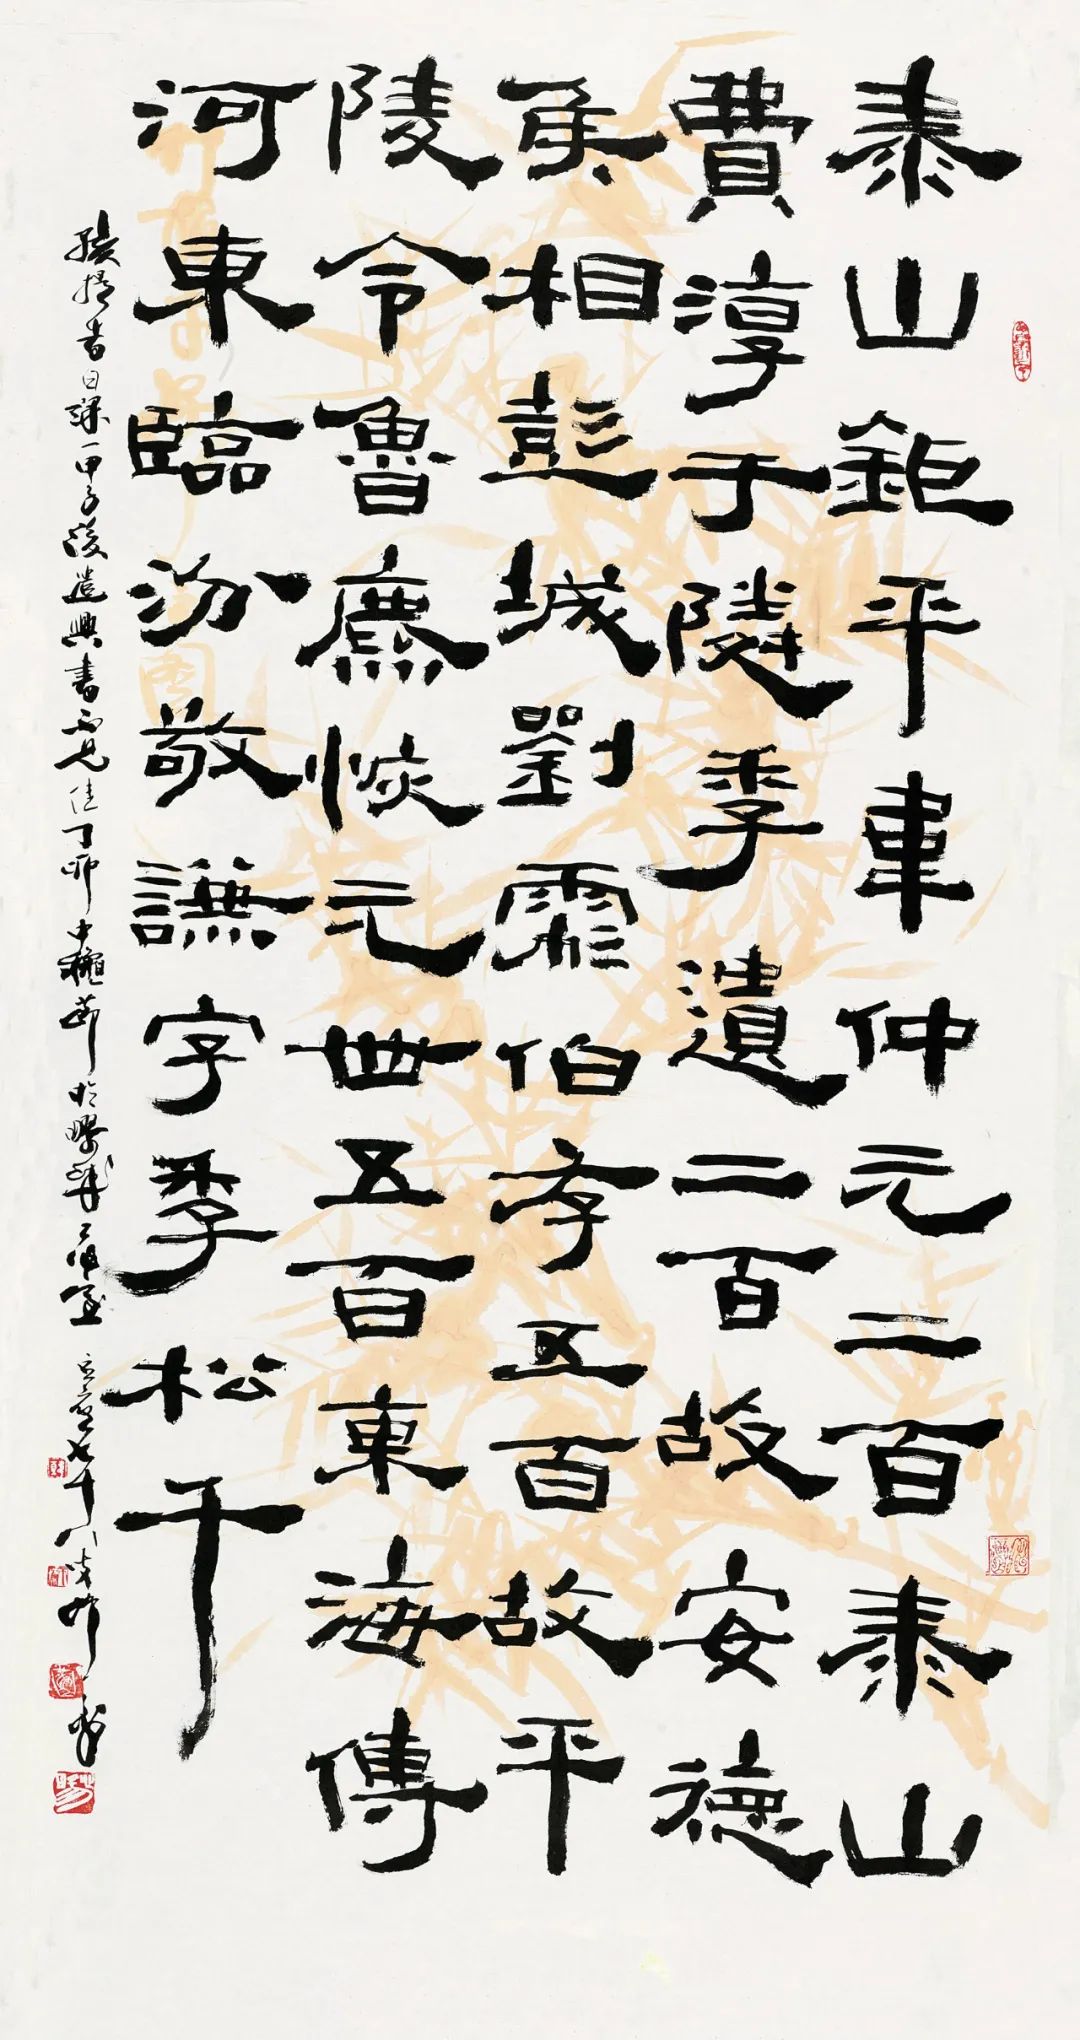 泰山鉅平韋仲元二百泰山
費淳于隣季遺二百故安德
侯相彭城劉彪伯存五百故平
陵令魯麃恢元世五百東海傅
河東臨汾敬謙字季松千
孩提書日課一甲子後遣興書不見佳丁卯中龝節於 七十八